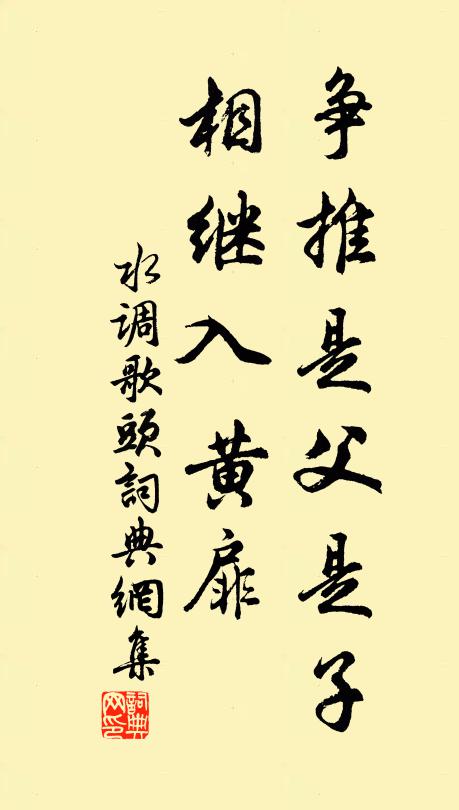 争推是父是子
相继入黄扉
水调歌头詞典網集
詞典
网印